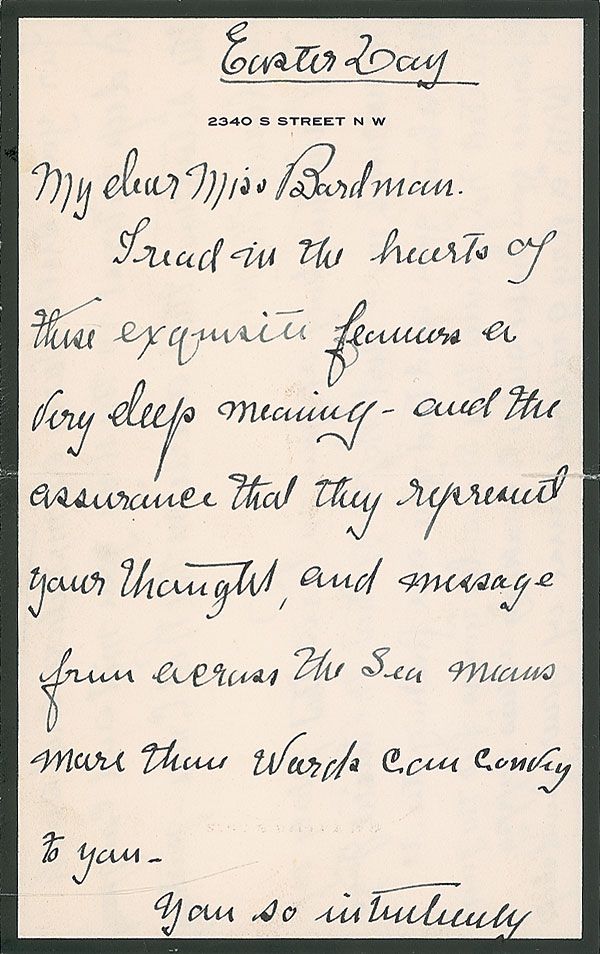 Easter Day
2340 S STREET N W
My dear Miss Boardman.
I read in the hearts of
these exquisite flowers a
very deep meaning - and the
assurance that they represent
your thought, and message
from across the Sea means
more than Words Can Convey
to you -
You so intuitively